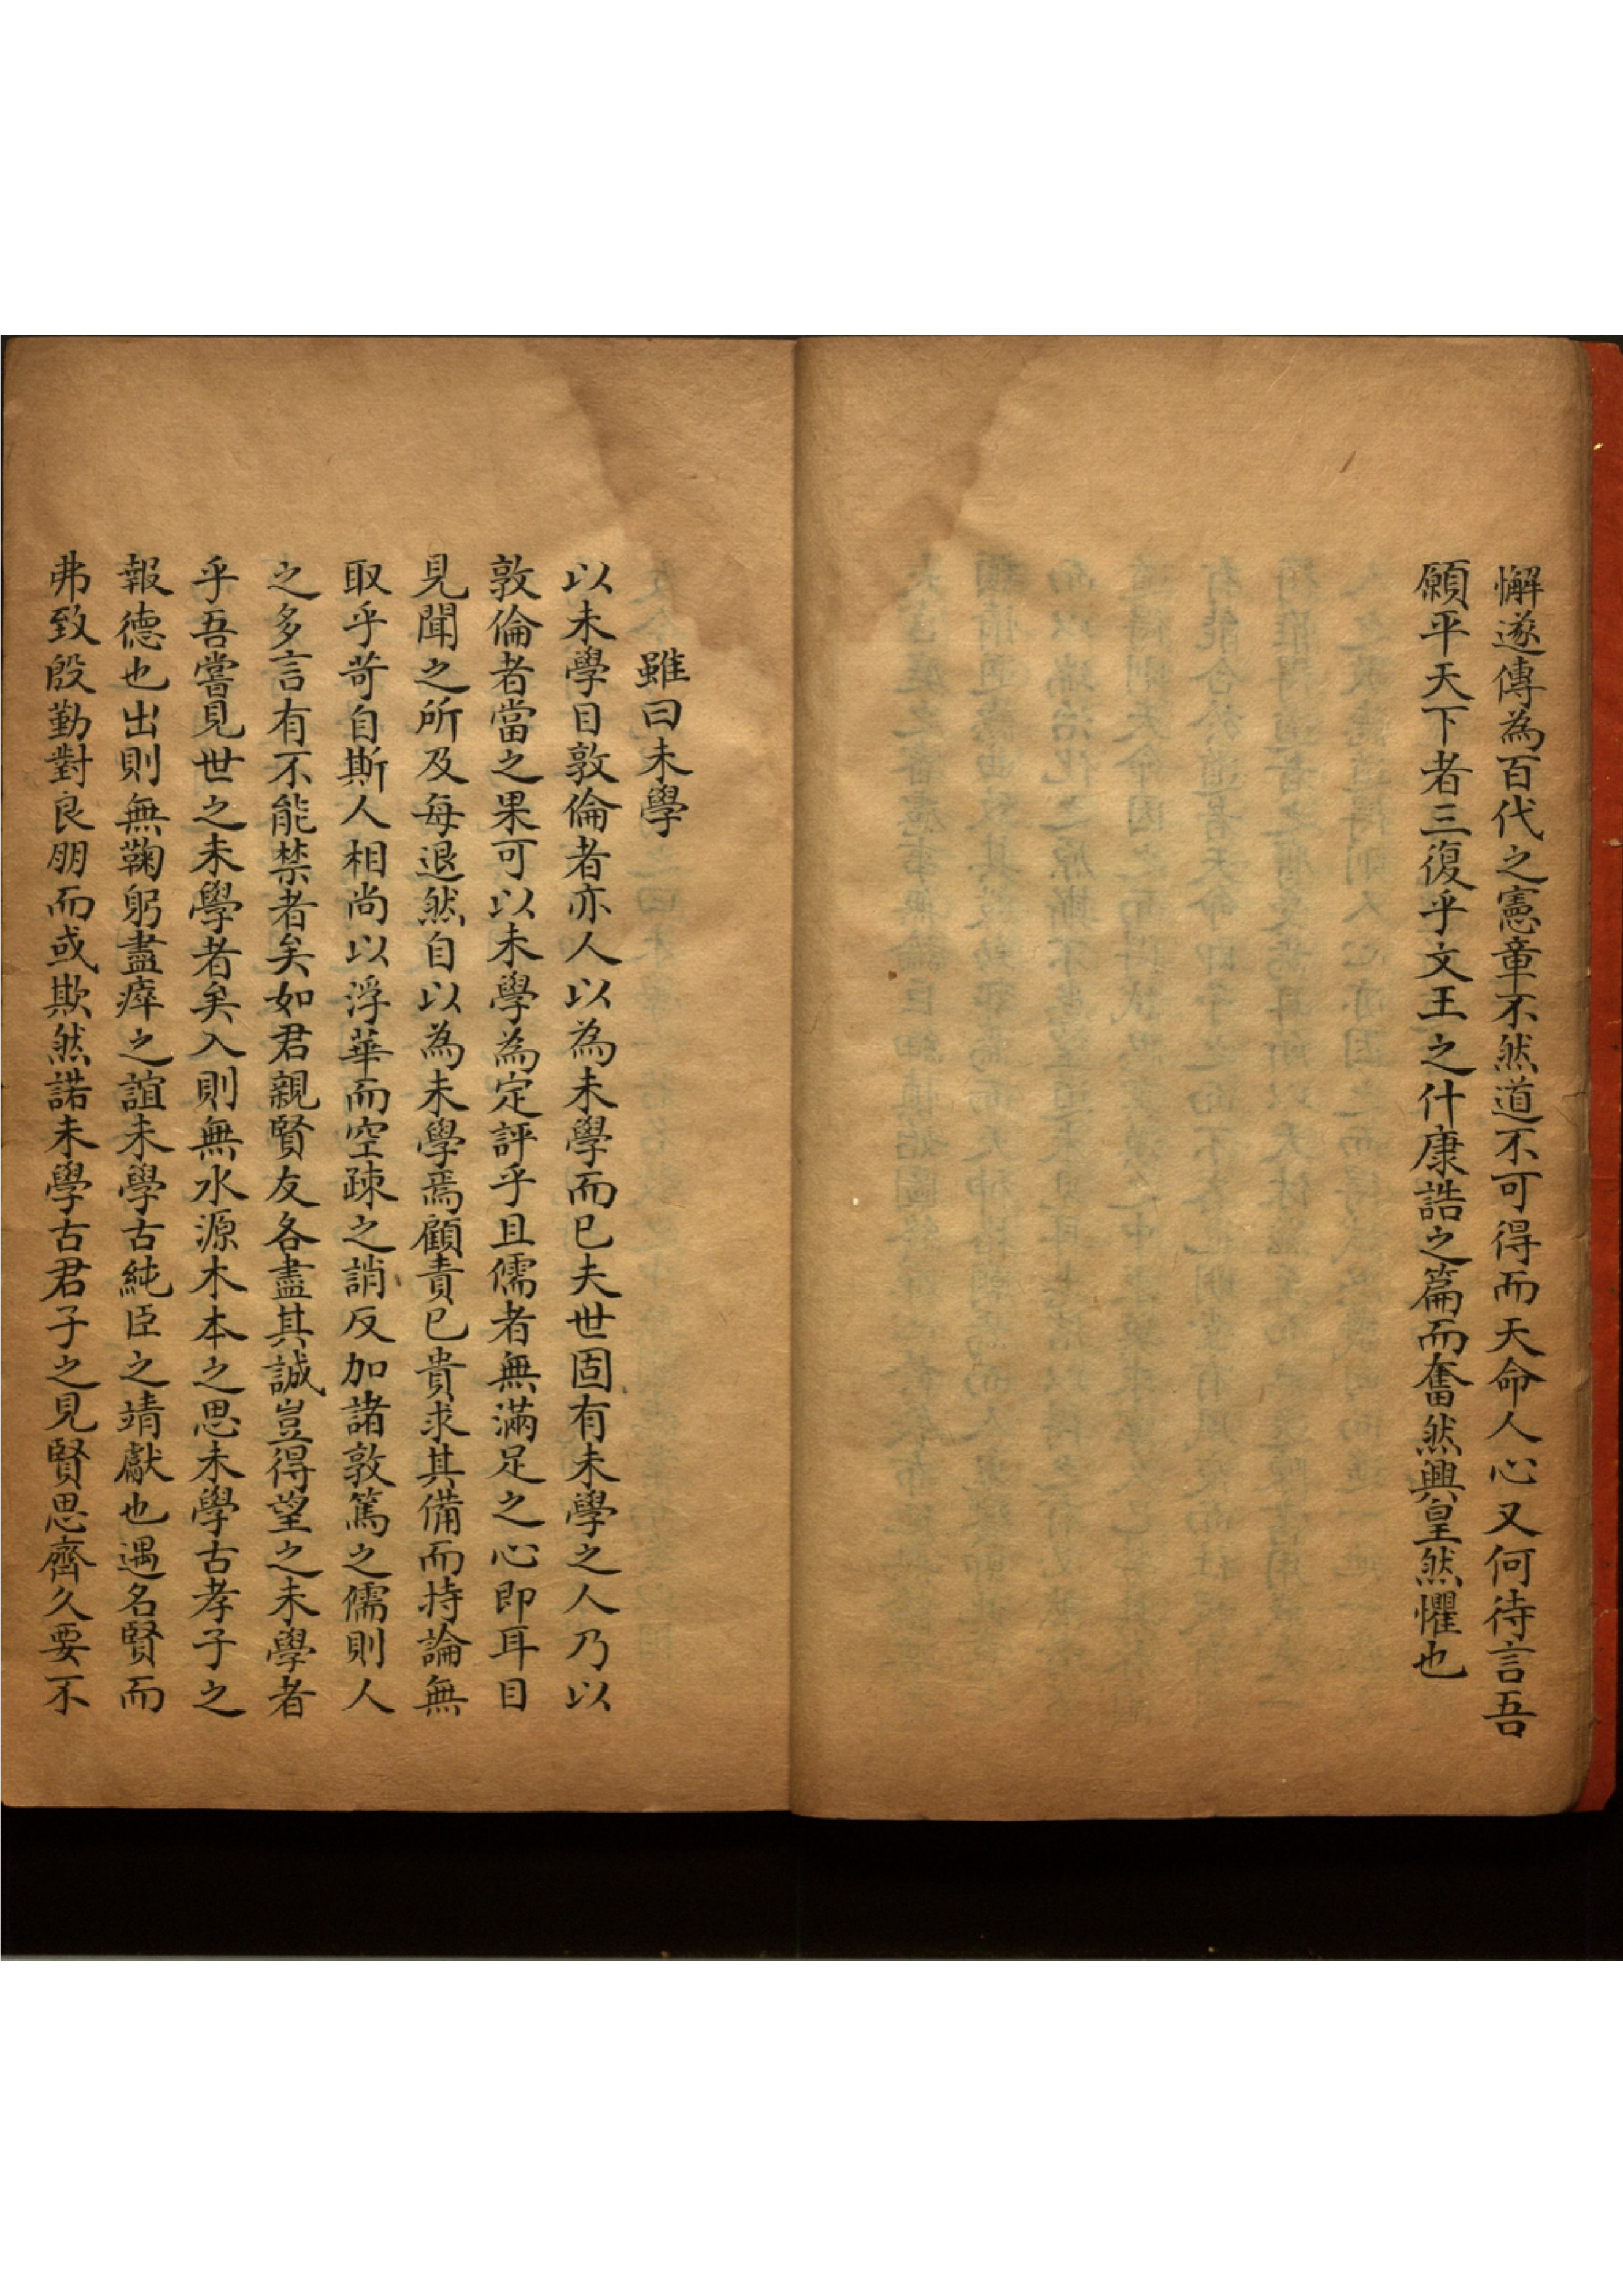 懈遂傳為百代之憲章不然道不可得而天命人心又何待言吾
願平天下者三復乎文王之什康誥之篇而奮然興皇然懼也
雖曰未學
以未學目敦倫者亦人以為未學而已夫世固有未學之人乃以
敦倫者當之果可以未學為定評乎且儒者無滿足之心即耳目
見聞之所及每退然自以為未學焉顧責已貴求其備而持論無
取乎苛自斯人相尚以浮華而空疎之誚反加諸敦篤之儒則人
之多言有不能禁者矣如君親賢友各盡其誠豈得望之未學者
乎吾嘗見世之未學者矣入則無水源木本之思未學古孝子之
報德也出則無鞠躬盡瘁之誼未學古純臣之靖獻也遇名賢而
弗致殷勤對良朋而或欺然諾未學古君子之見賢思齊久要不